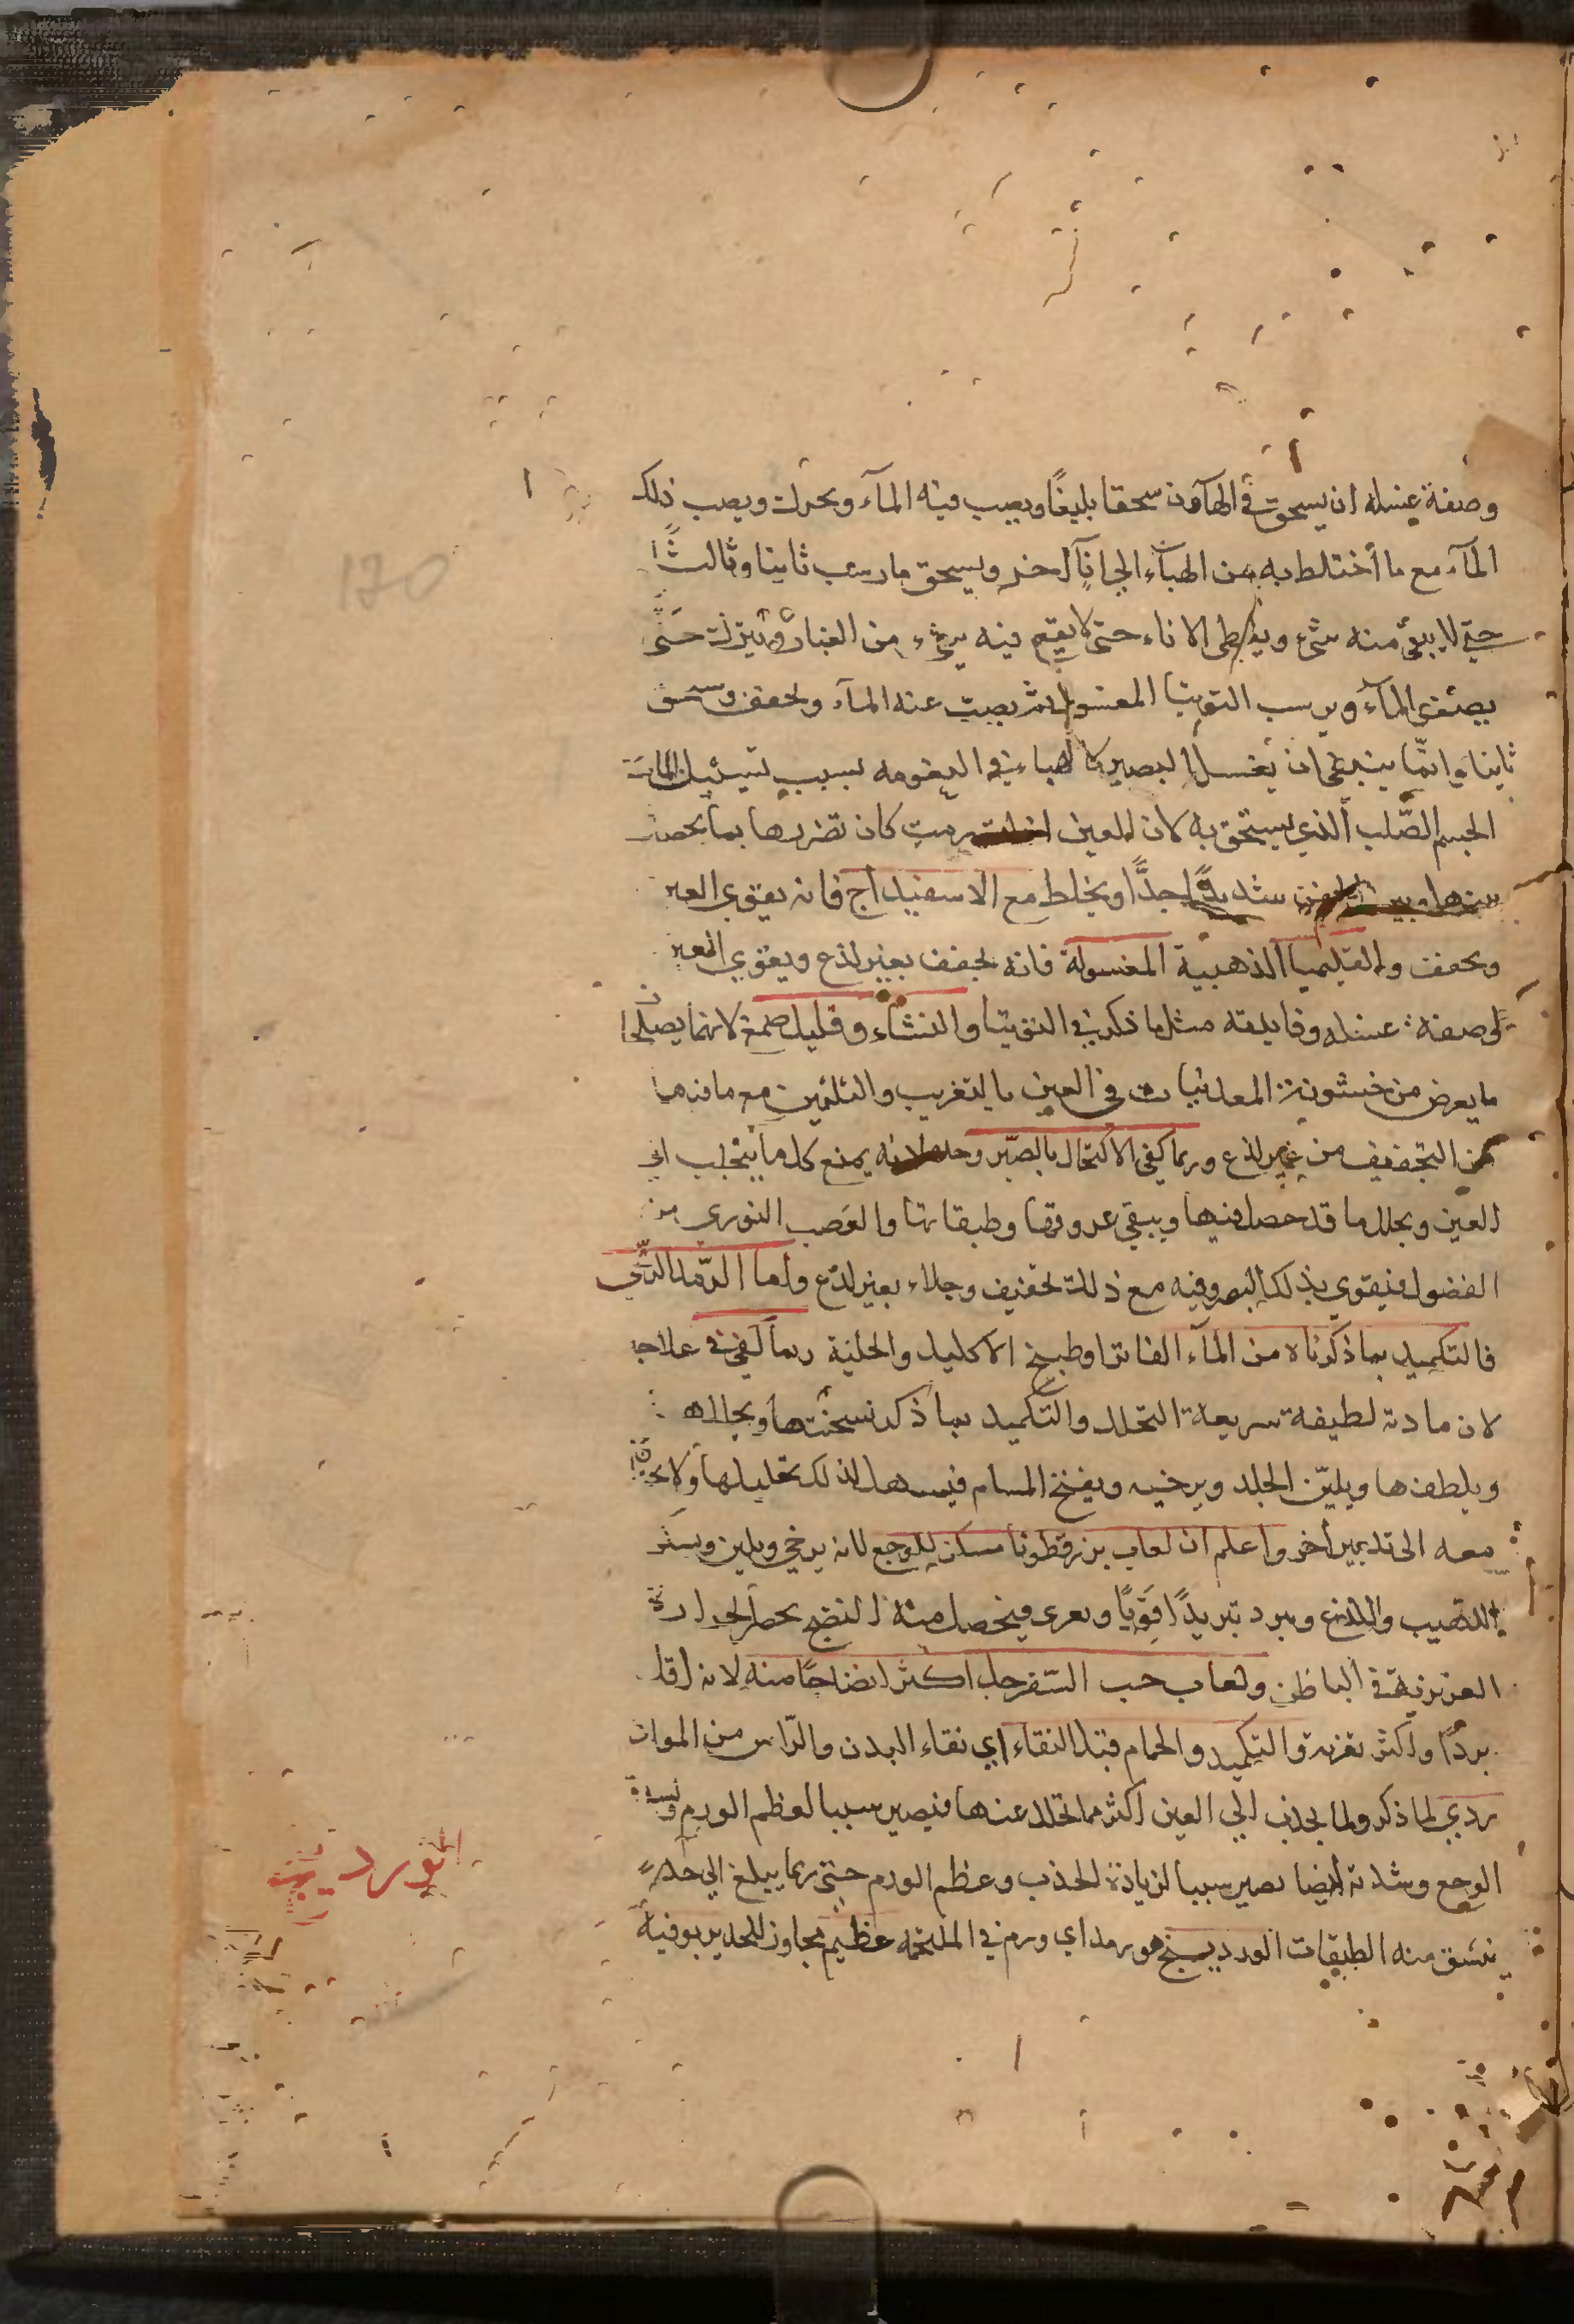 وصفة غسله ان يسحق في الهاون سحقا بليغًا ويصب فيه المآء ويحرك ويصب ذلك
المآء مع ما أختلط به من الهبآء الى انآء اخر ويسحق ما رسب ثانيا وثالثًا
حتى لا يبقى منه شيء ويغطى الاناء حتى لا يقع فيه شيء من الغبار ويترك حتّى
يصفى المآء ويرسب التوتيا المغسول ثم يصب عنه المآء ويجفف ويسحق
ثانيا وانّما ينبغي ان يغسل ليصير كالهباء في النعومه لسبب
الجسم الصّلب الذي يستحق به لان العين كان تضررها بما يحصل
شديدًا جدًّا ويخلط مع الاسفيداج فانه يقوي العين
ويجفف والقليميا الذهبية المغسولة فانه يجفف بغير لذع ويقوي العين
وصفة غسله وفايدته مثل ما ذكر في التوتيا والنشآء وقليل صمغ لانهما يصلحان
ما يعرض من خشونة المعدنيات في العين بالتغرية والتلين مع ما فيهما
من التجفيف من غير لذع وربما كفى الاكتحال بالصّبر وحده لانه يمنع كل ما يتجلب الى
العين ويحلل ما قد حصل فيها وينقي عروقها وطبقاتها والعصب النوري من
الفضول فيقوي بذلك البصر وفيه مع ذلك تجفيف وجلاء بغير لذع واما الرّمد الرّيحي
فالتكميد بما ذكرناه من المآء الفاتر او طبيخ الاكليل والحلبة ربما كفى في علاجه
لان مادته لطيفة سريعة التحلل والتكميد بما ذكر يسخنها ويحللها
ويلطفها ويليّن الجلد ويرخيه ويفتح المسام فيسهل لذلك تحليلها ولا يحتاج
معه الى تدبير أخر واعلم ان لعاب بزرقطونا مسكن للوجع لانه يرخي ويلين ويستر
اللهيب واللذع ويبرد تبريدًا قويًا ويغرى فيحصل منه النضج بحصر الحرارة
الغريزية في الباطن ولعاب حب السّفرجل اكثر انضاجًا منه لانه اقل
بردًا واكثر تغرية والتكميد والحمام قبل النقاء اي نقاء البدن والرّاس من المواد
ردي لما ذكر ولما يجذب الى العين اكثر مما تحلل عنها فيصير سببا لعظم الورم وشدة
الوجع وشدته أيضا يصير سببا لزيادة الجذب وعظم الورم حتى ربما يبلغ الي حد
ينشق منه الطبقات الوردينج هو رمد اي ورم في الملتحمه عظيم يجاوز الحد يربو فيه
الوردينج